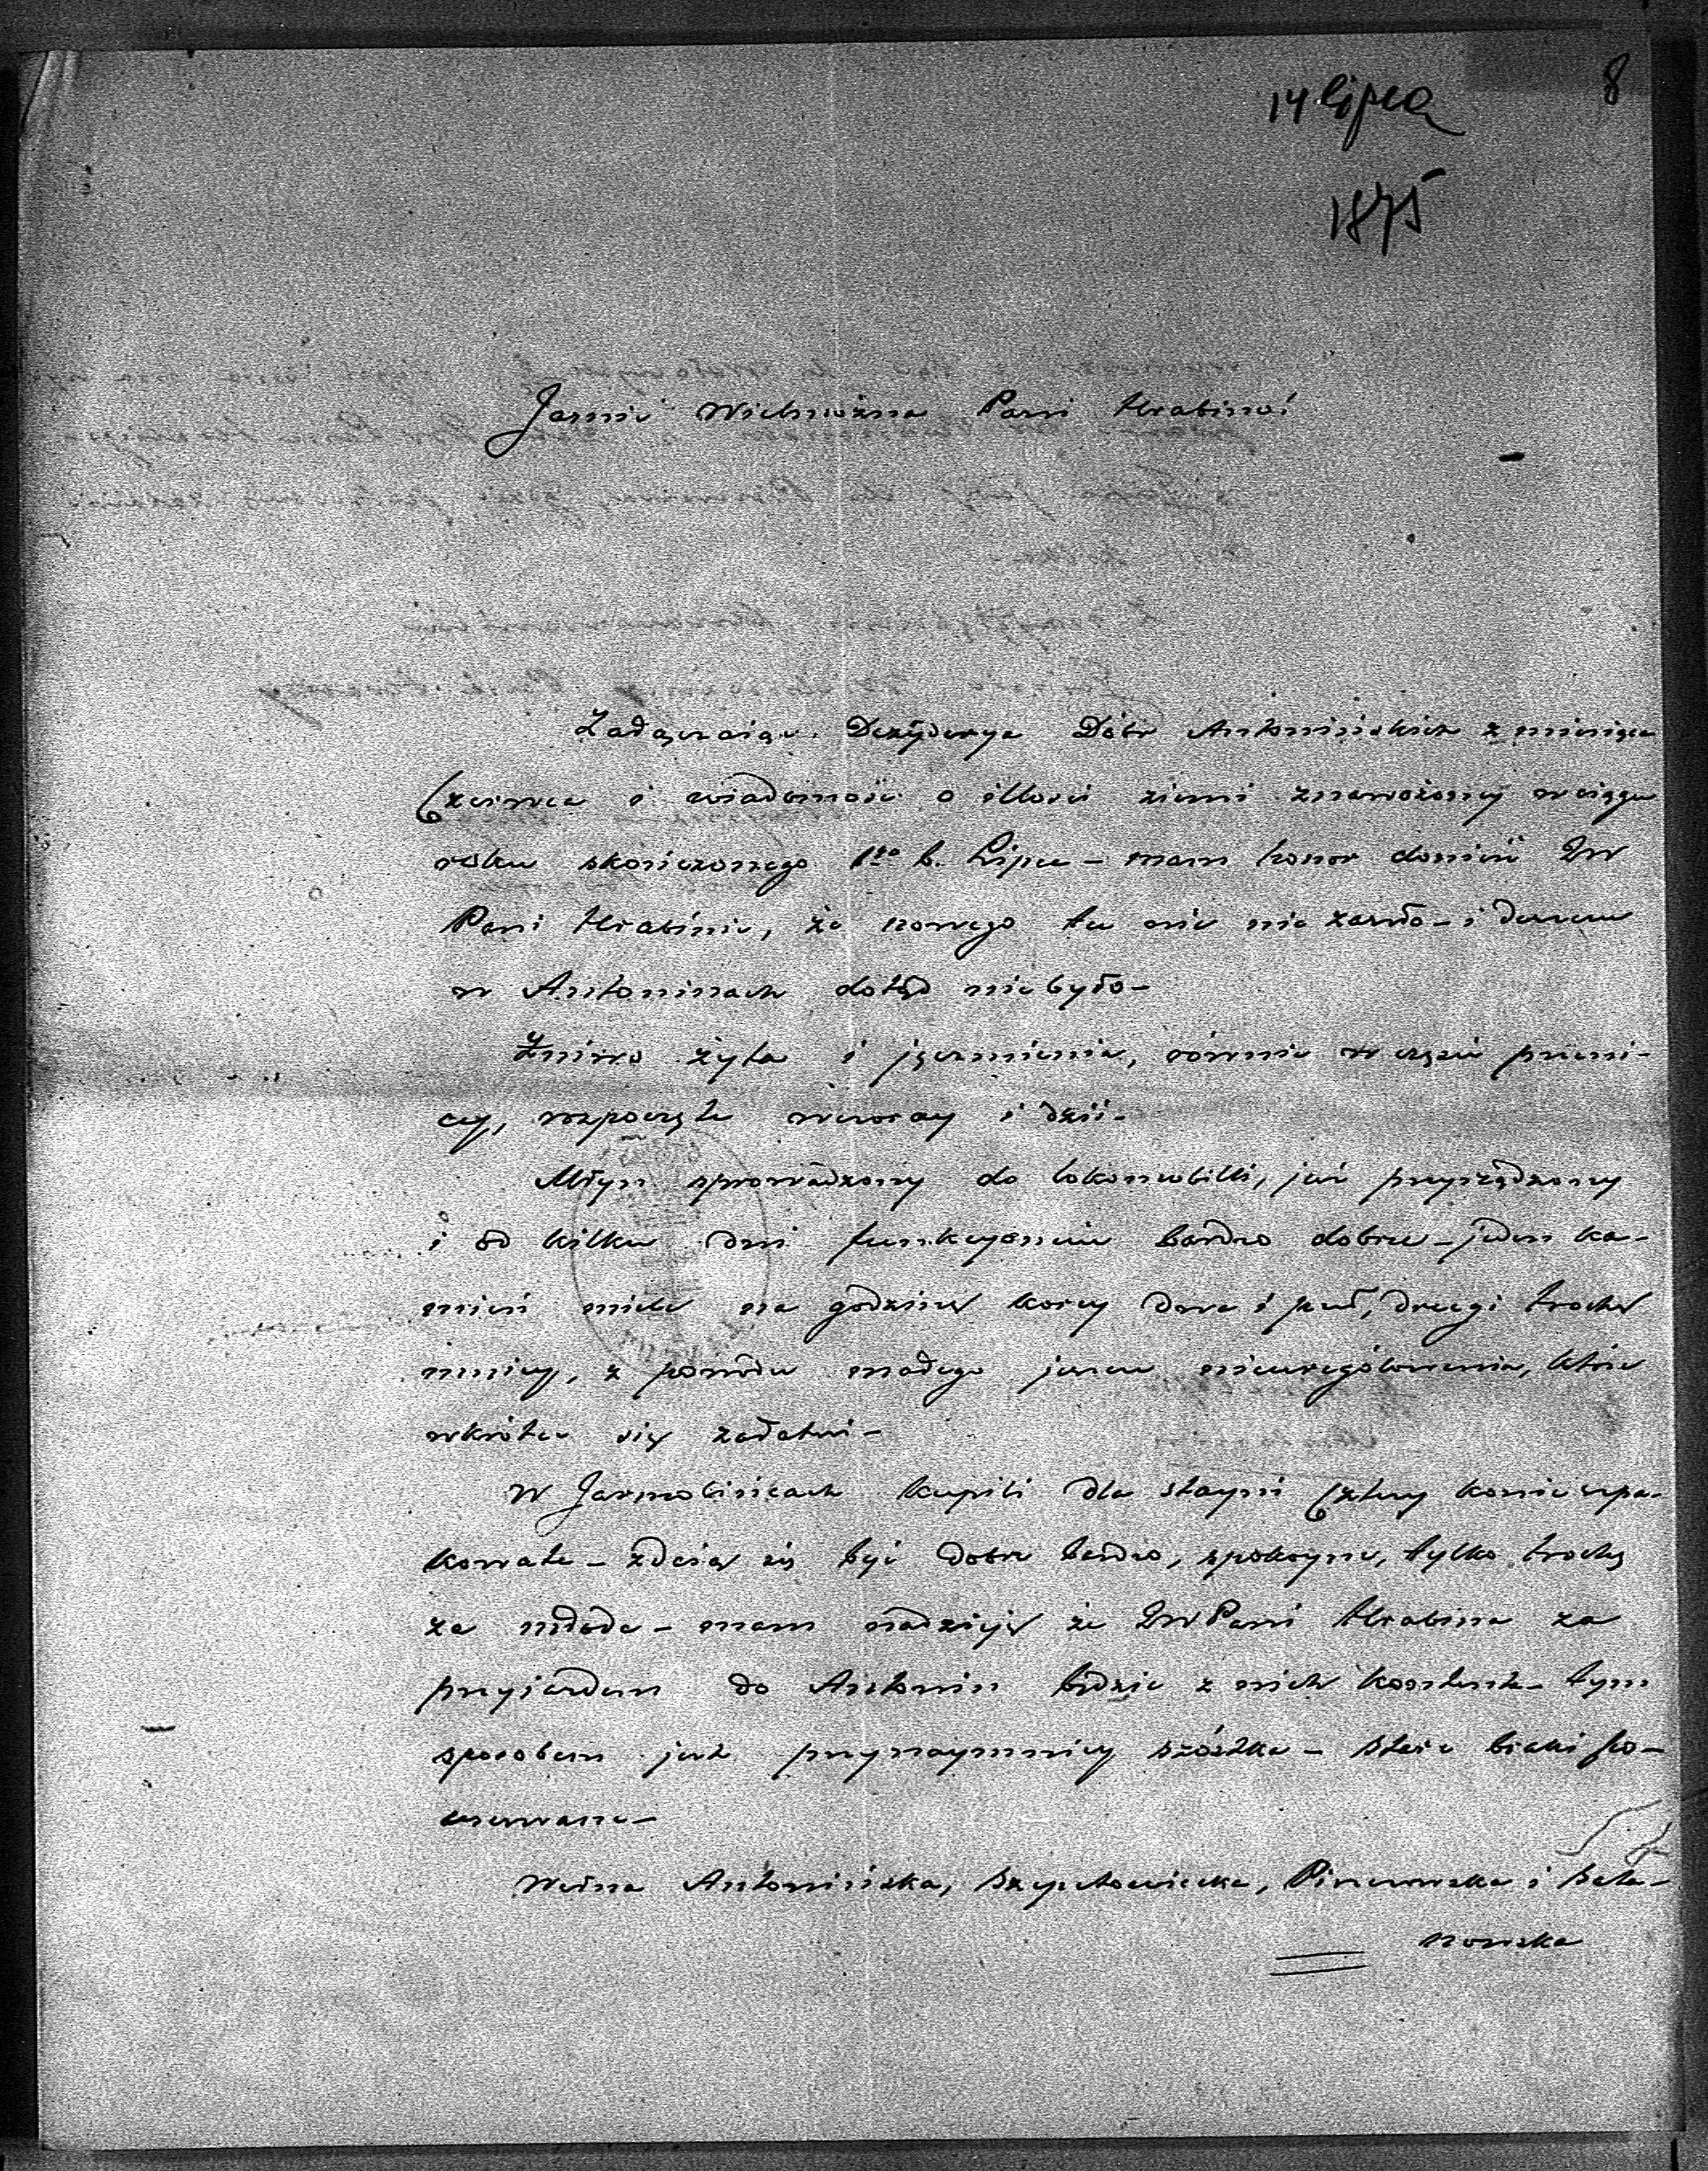 8
14 lipca
1875
Jaśnie Wielmożna Pani Hrabino!
Załączając Dezyderya Dóbr Antonińskich z miesiąca
Czerwca i wiadomość o illości ziemi znawożonej w ciągu
roku skończonego 1go b. Lipca – mam honor donieść JW
Pani Hrabinie, że nowego tu nic nie zaszło – i deszczu
w Antoninach dotąd nie było –
Żniwo żyta i jęczmienia, równie w części pszeni-
cy, rozpoczęte wczoray i dziś –
Młyn sprowadzony do lokomobilli, już przyrządzony
i od kilku dni funkcyonuie bardzo dobrze – jeden ka-
mień miele na godzinę korcy dwa i puł, drugi trochę
mniey, z powodu małego jeszcze nieurególowania, które
wkrótce się załatwi –
W Jarmolińcach kupili dla stayni Cztery konie szpa-
kowate – zdaią się być dobre bardzo, spokoyne, tylko trochę
za młode – mam nadzieję że JW Pani Hrabina za
przyjazdem do Antonin będzie z nich kontenta – tym
sposobem jest przynaymniey szóstka – stare białe po-
usuwane –
Wełna Antonińska, Szychowiecka, Piszczowska i Seta-
nowska